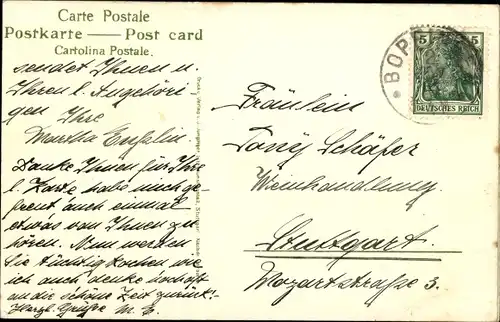 Carte Postale
Postkarte — Post card
Cartolina Postale.
sendet Ihnen u.
Ihren l. Angehöri
gen Ihre
Martha Enßlin.
Danke Ihnen für Ihre
l. Karte habe mich ge-
freut auch einmal
etwas von Ihnen zu
hören. Nun werden
Sie tüchtig kochen wie
ich auch denke noch oft
an die schöne Zeit zurück!
Herzl. Grüße M. E.
BOP
5 5
DEUTSCHES REICH
Fräulein
Tony Schäfer
Weinhandlung
Stuttgart.
Mozartstraße 3.